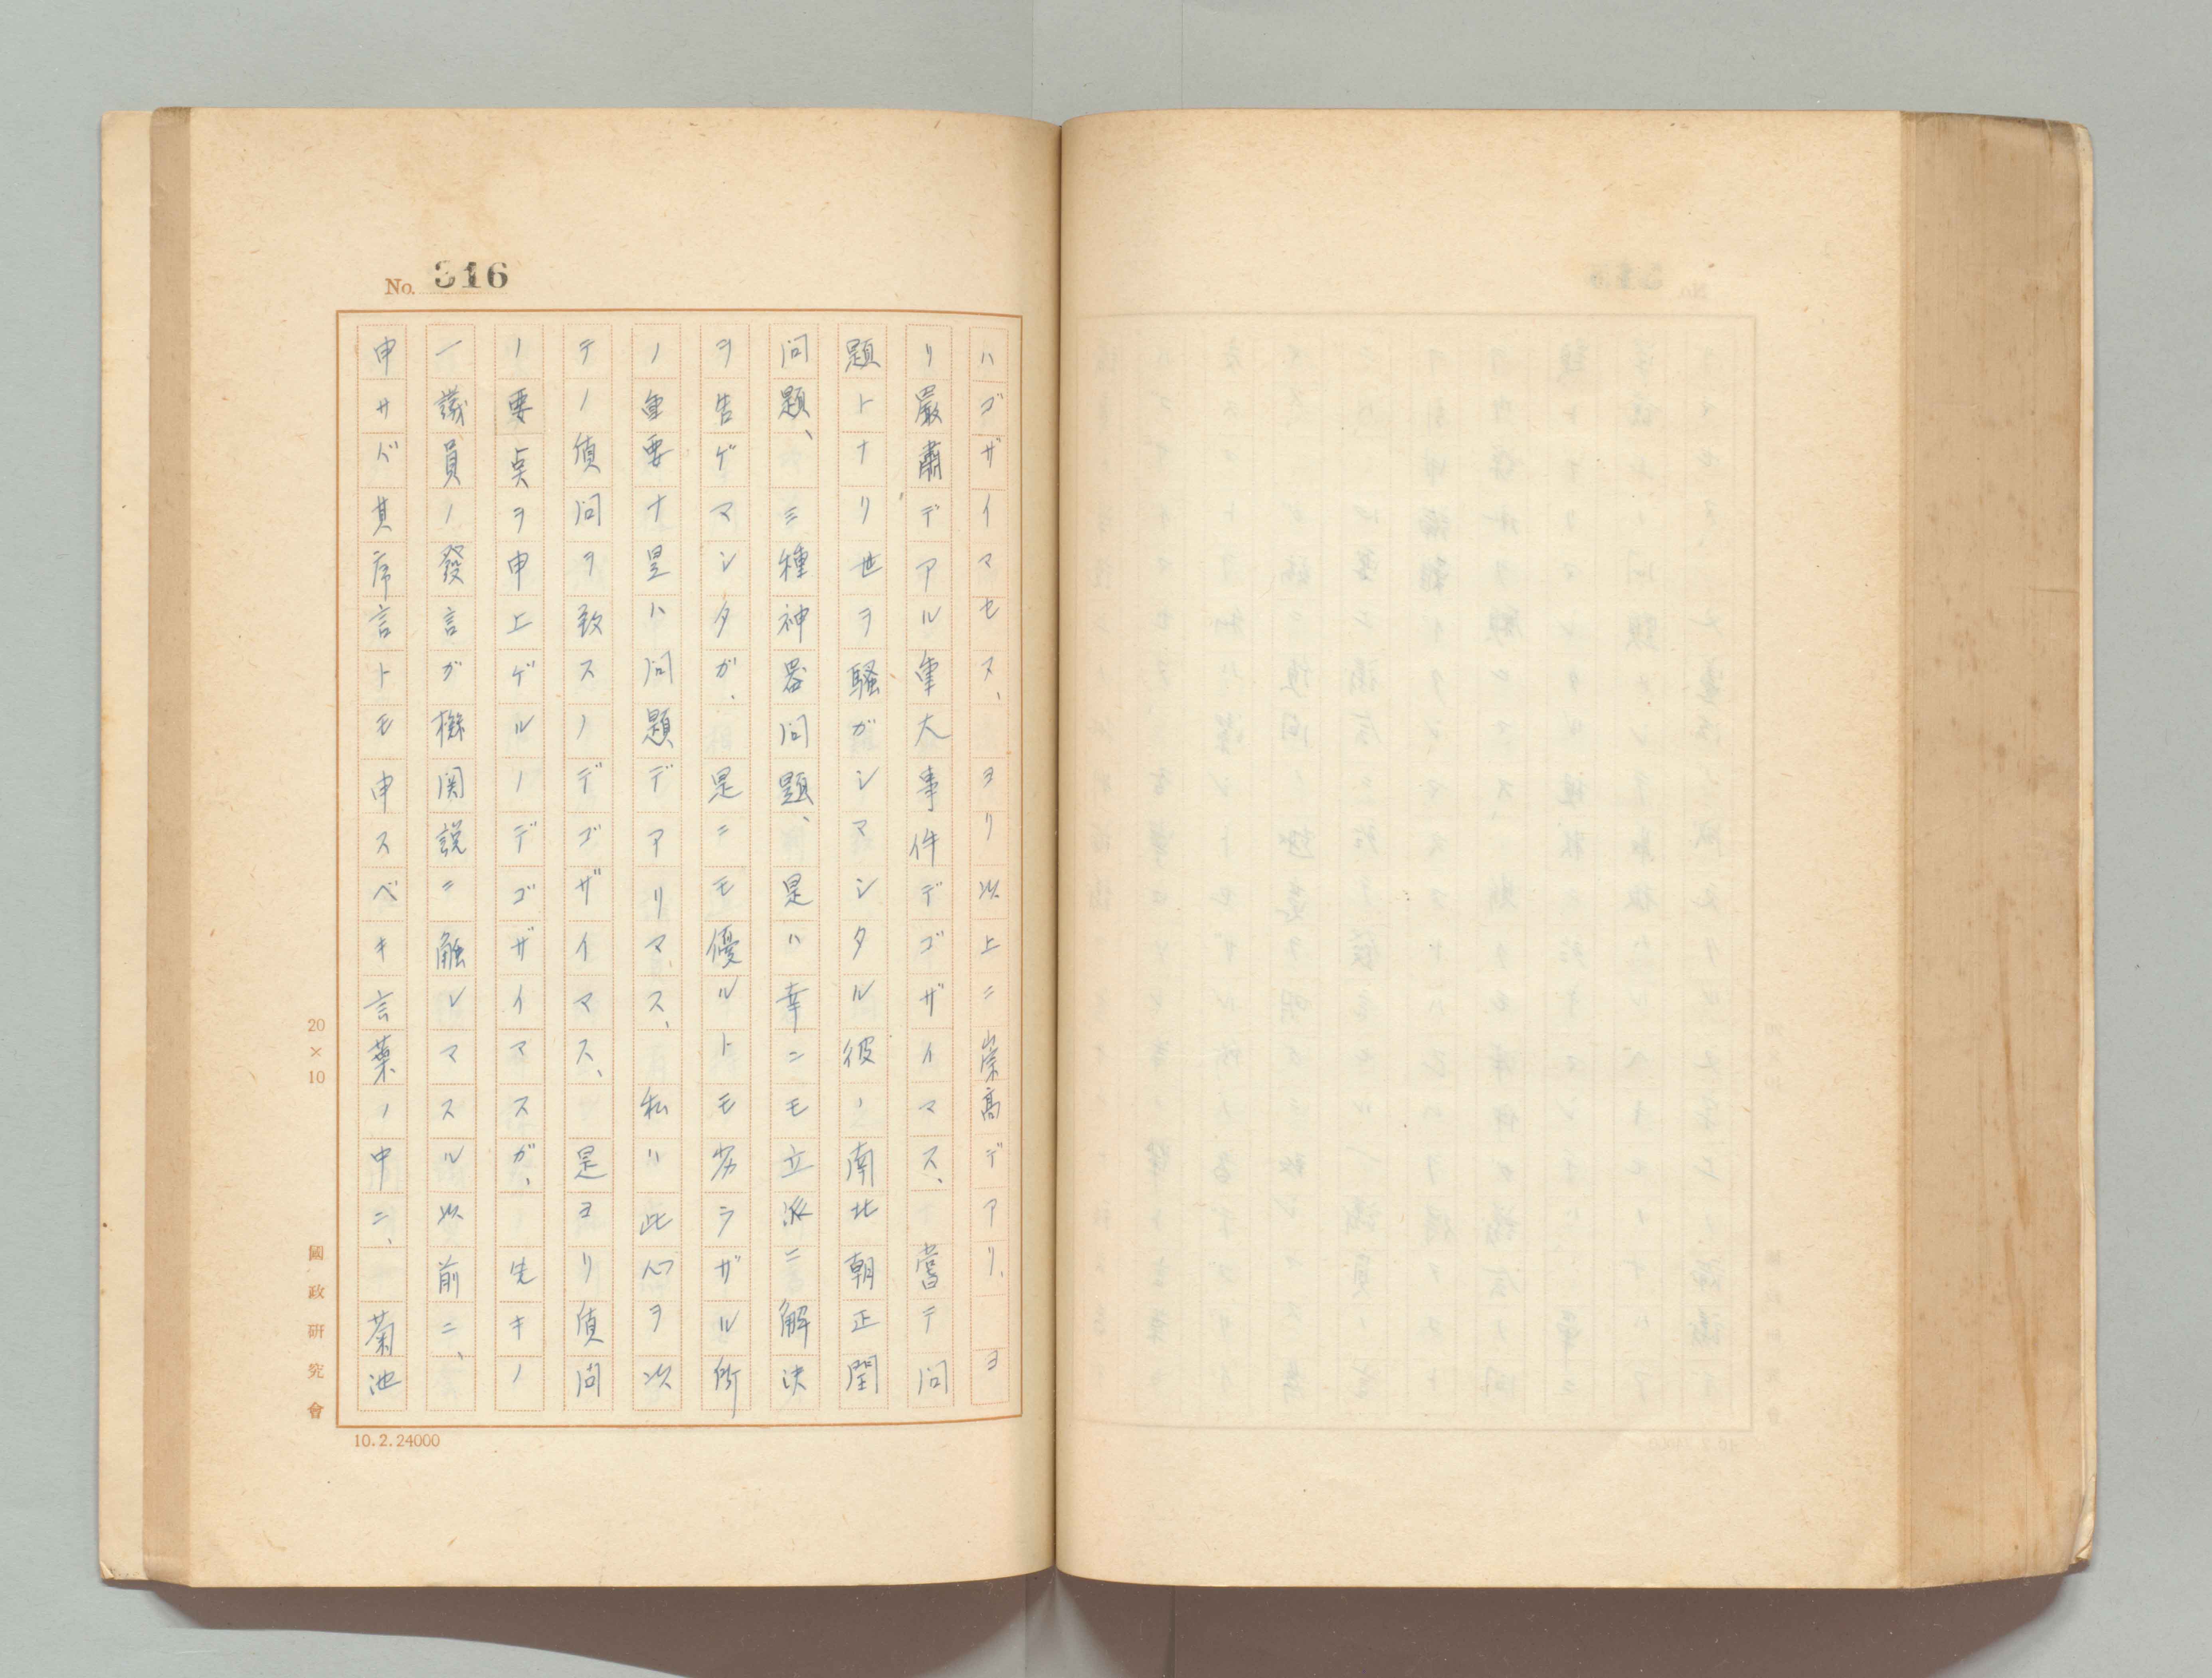 No. 316
ハゴザイマセヌ、ヨリ以上ニ崇高デアリ、ヨ
リ嚴肅デアル重大事件デゴザイマス、嘗テ問
題トナリ世ヲ騒ガシマシタル彼ノ南北朝正閏
問題、三種神器問題、是ハ幸ニモ立派ニ解決
ヲ告ゲマシタガ、是ニモ優ルトモ劣ラザル所
ノ重要ナ是ハ問題デアリマス、私ハ此心ヲ以
テノ質問ヲ致スノデゴザイマス、是ヨリ質問
ノ要点ヲ申上ゲルノデゴザイマスガ、先キノ
一議員ノ發言ガ機関説ニ触レマスル以前ニ、
申サバ其序言トモ申スベキ言葉ノ中ニ、菊池
20×10
國政研究會
10.2.24000